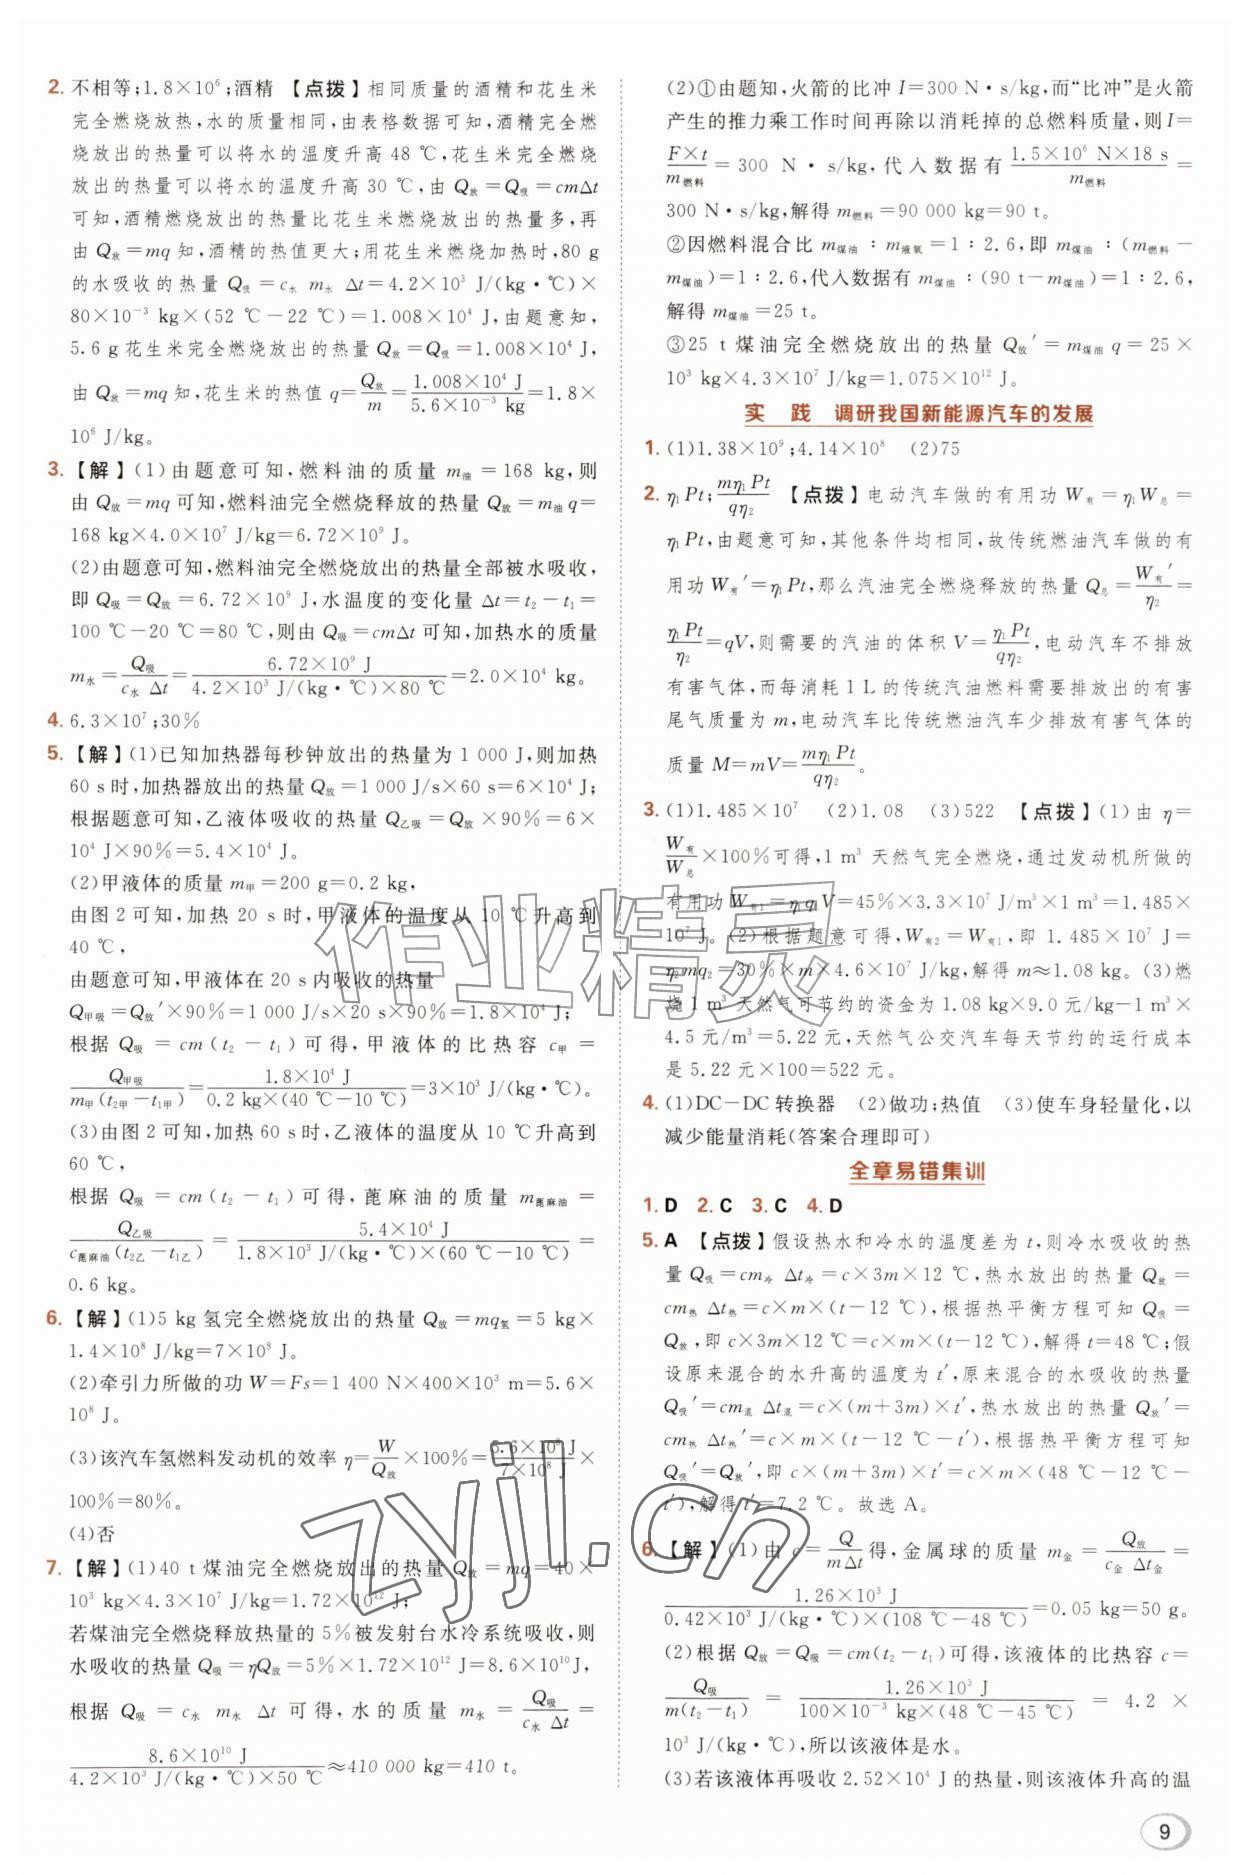 2. 不相等;1.8×10⁶;酒精 【点拨】相同质量的酒精和花生米
完全燃烧放热,水的质量相同,由表格数据可知,酒精完全燃
烧放出的热量可以将水的温度升高 48 ℃,花生米完全燃烧
放出的热量可以将水的温度升高 30 ℃,由 Q放=Q吸=cmΔt
可知,酒精燃烧放出的热量比花生米燃烧放出的热量多,再
由 Q放=mq 知,酒精的热值更大;用花生米燃烧加热时,80 g
的水吸收的热量 Q吸=c水 m水 Δt=4.2×10³ J/(kg·℃)×
80×10⁻³ kg×(52 ℃-22 ℃)=1.008×10⁴ J,由题意知,
5.6 g花生米完全燃烧放出的热量 Q放=Q吸=1.008×10⁴ J,
由 Q放=mq 知,花生米的热值 q=Q放/m=1.008×10⁴ J/5.6×10⁻³ kg=1.8×
10⁶ J/kg。
3.【解】(1)由题意可知,燃料油的质量 m油=168 kg,则
由 Q放=mq 可知,燃料油完全燃烧释放的热量 Q放=m油 q=
168 kg×4.0×10⁷ J/kg=6.72×10⁹ J。
(2)由题意可知,燃料油完全燃烧放出的热量全部被水吸收,
即 Q吸=Q放=6.72×10⁹ J,水温度的变化量 Δt=t₂-t₁=
100 ℃-20 ℃=80 ℃,则由 Q吸=cmΔt 可知,加热水的质量
m水=Q吸/c水 Δt=6.72×10⁹ J/4.2×10³ J/(kg·℃)×80 ℃=2.0×10⁴ kg。
4. 6.3×10⁷;30%
5.【解】(1)已知加热器每秒钟放出的热量为 1 000 J,则加热
60 s时,加热器放出的热量 Q放=1 000 J/s×60 s=6×10⁴ J;
根据题意可知,乙液体吸收的热量 Q乙吸=Q放×90%=6×
10⁴ J×90%=5.4×10⁴ J。
(2)甲液体的质量 m甲=200 g=0.2 kg,
由图 2 可知,加热 20 s 时,甲液体的温度从 10 ℃升高到
40 ℃,
由题意可知,甲液体在 20 s内吸收的热量
Q甲吸=Q放′×90%=1 000 J/s×20 s×90%=1.8×10⁴ J;
根据 Q吸=cm(t₂-t₁)可得,甲液体的比热容 c甲=
Q甲吸/m甲(t₂甲-t₁甲)=1.8×10⁴ J/0.2 kg×(40 ℃-10 ℃)=3×10³ J/(kg·℃)。
(3)由图 2 可知,加热 60 s时,乙液体的温度从 10 ℃升高到
60 ℃,
根据 Q吸=cm(t₂-t₁)可得,蓖麻油的质量 m蓖麻油=
Q乙吸/c蓖麻油(t₂乙-t₁乙)=5.4×10⁴ J/1.8×10³ J/(kg·℃)×(60 ℃-10 ℃)=
0.6 kg。
6.【解】(1)5 kg 氢完全燃烧放出的热量 Q放=mq氢=5 kg×
1.4×10⁸ J/kg=7×10⁸ J。
(2)牵引力所做的功 W=Fs=1 400 N×400×10³ m=5.6×
10⁸ J。
(3)该汽车氢燃料发动机的效率 η=W/Q放×100%=5.6×10⁸ J/7×10⁸ J×
100%=80%。
(4)否
7.【解】(1)40 t 煤油完全燃烧放出的热量 Q放=mq=40×
10³ kg×4.3×10⁷ J/kg=1.72×10¹² J;
若煤油完全燃烧释放热量的 5%被发射台水冷系统吸收,则
水吸收的热量 Q吸=ηQ放=5%×1.72×10¹² J=8.6×10¹⁰J,
根据 Q吸=c水 m水 Δt 可得,水的质量 m水=Q吸/c水 Δt=
8.6×10¹⁰ J/4.2×10³ J/(kg·℃)×50 ℃≈410 000 kg=410 t。
(2)①由题知,火箭的比冲 I=300 N·s/kg,而“比冲”是火箭
产生的推力乘工作时间再除以消耗掉的总燃料质量,则 I=
F×t/m燃料=300 N·s/kg,代入数据有1.5×10⁶ N×18 s/m燃料=
300 N·s/kg,解得 m燃料=90 000 kg=90 t。
②因燃料混合比 m煤油:m液氧=1:2.6,即 m煤油:(m燃料-
m煤油)=1:2.6,代入数据有 m煤油:(90 t-m煤油)=1:2.6,
解得 m煤油=25 t。
③25 t 煤油完全燃烧放出的热量 Q放′=m煤油 q=25×
10³ kg×4.3×10⁷ J/kg=1.075×10¹² J。
实 践 调研我国新能源汽车的发展
1. (1)1.38×10⁹;4.14×10⁸ (2)75
2. η₁Pt;mη₁Pt/qη₂ 【点拨】电动汽车做的有用功 W有=η₁W总=
η₁Pt,由题意可知,其他条件均相同,故传统燃油汽车做的有
用功 W有′=η₁Pt,那么汽油完全燃烧释放的热量 Q总=W有′/η₂=
η₁Pt/η₂=qV,则需要的汽油的体积 V=η₁Pt/qη₂,电动汽车不排放
有害气体,而每消耗 1 L 的传统汽油燃料需要排放出的有害
尾气质量为 m,电动汽车比传统燃油汽车少排放有害气体的
质量 M=mV=mη₁Pt/qη₂。
3. (1)1.485×10⁷ (2)1.08 (3)522 【点拨】(1)由 η=
W有/W总×100%可得,1 m³ 天然气完全燃烧,通过发动机所做的
有用功 W有₁=η₁q₁V=45%×3.3×10⁷ J/m³×1 m³=1.485×
10⁷ J。(2)根据题意可得,W有₂=W有₁,即 1.485×10⁷ J=
η₂mq₂=30%×m×4.6×10⁷ J/kg,解得 m≈1.08 kg。(3)燃
烧 1 m³ 天然气可节约的资金为 1.08 kg×9.0 元/kg-1 m³×
4.5 元/m³=5.22 元,天然气公交汽车每天节约的运行成本
是 5.22 元×100=522 元。
4. (1)DC-DC转换器 (2)做功;热值 (3)使车身轻量化,以
减少能量消耗(答案合理即可)
全章易错集训
1. D 2. C 3. C 4. D
5. A 【点拨】假设热水和冷水的温度差为 t,则冷水吸收的热
量 Q吸=cm冷 Δt冷=c×3m×12 ℃,热水放出的热量 Q放=
cm热 Δt热=c×m×(t-12 ℃),根据热平衡方程可知 Q吸=
Q放,即 c×3m×12 ℃=c×m×(t-12 ℃),解得 t=48 ℃;假
设原来混合的水升高的温度为 t′,原来混合的水吸收的热量
Q吸′=cm混 Δt混=c×(m+3m)×t′,热水放出的热量 Q放′=
cm热 Δt热′=c×m×(48 ℃-12 ℃-t′),根据热平衡方程可知
Q吸′=Q放′,即 c×(m+3m)×t′=c×m×(48 ℃-12 ℃-
t′),解得 t′=7.2 ℃。故选 A。
6.【解】(1)由 c=Q/mΔt得,金属球的质量 m金=Q放/c金 Δt金=
1.26×10³ J/0.42×10³ J/(kg·℃)×(108 ℃-48 ℃)=0.05 kg=50 g。
(2)根据 Q放=Q吸=cm(t₂-t₁)可得,该液体的比热容 c=
Q吸/m(t₂-t₁)=1.26×10³ J/100×10⁻³ kg×(48 ℃-45 ℃)=4.2×
10³ J/(kg·℃),所以该液体是水。
(3)若该液体再吸收 2.52×10⁴ J 的热量,则该液体升高的温
作业精灵
zyjl.cn
9